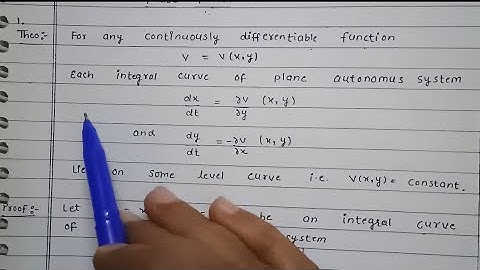 1.
Theo:- For any continuously differentiable function
V = V(x,y)
Each integral curve of plane autonomus system
dx/dt = ∂V/∂y (x, y)
and dy/dt = -∂V/∂x (x, y)
Lie on some level curve i.e. V(x,y) = constant.
Proof:- Let be an integral curve
of system